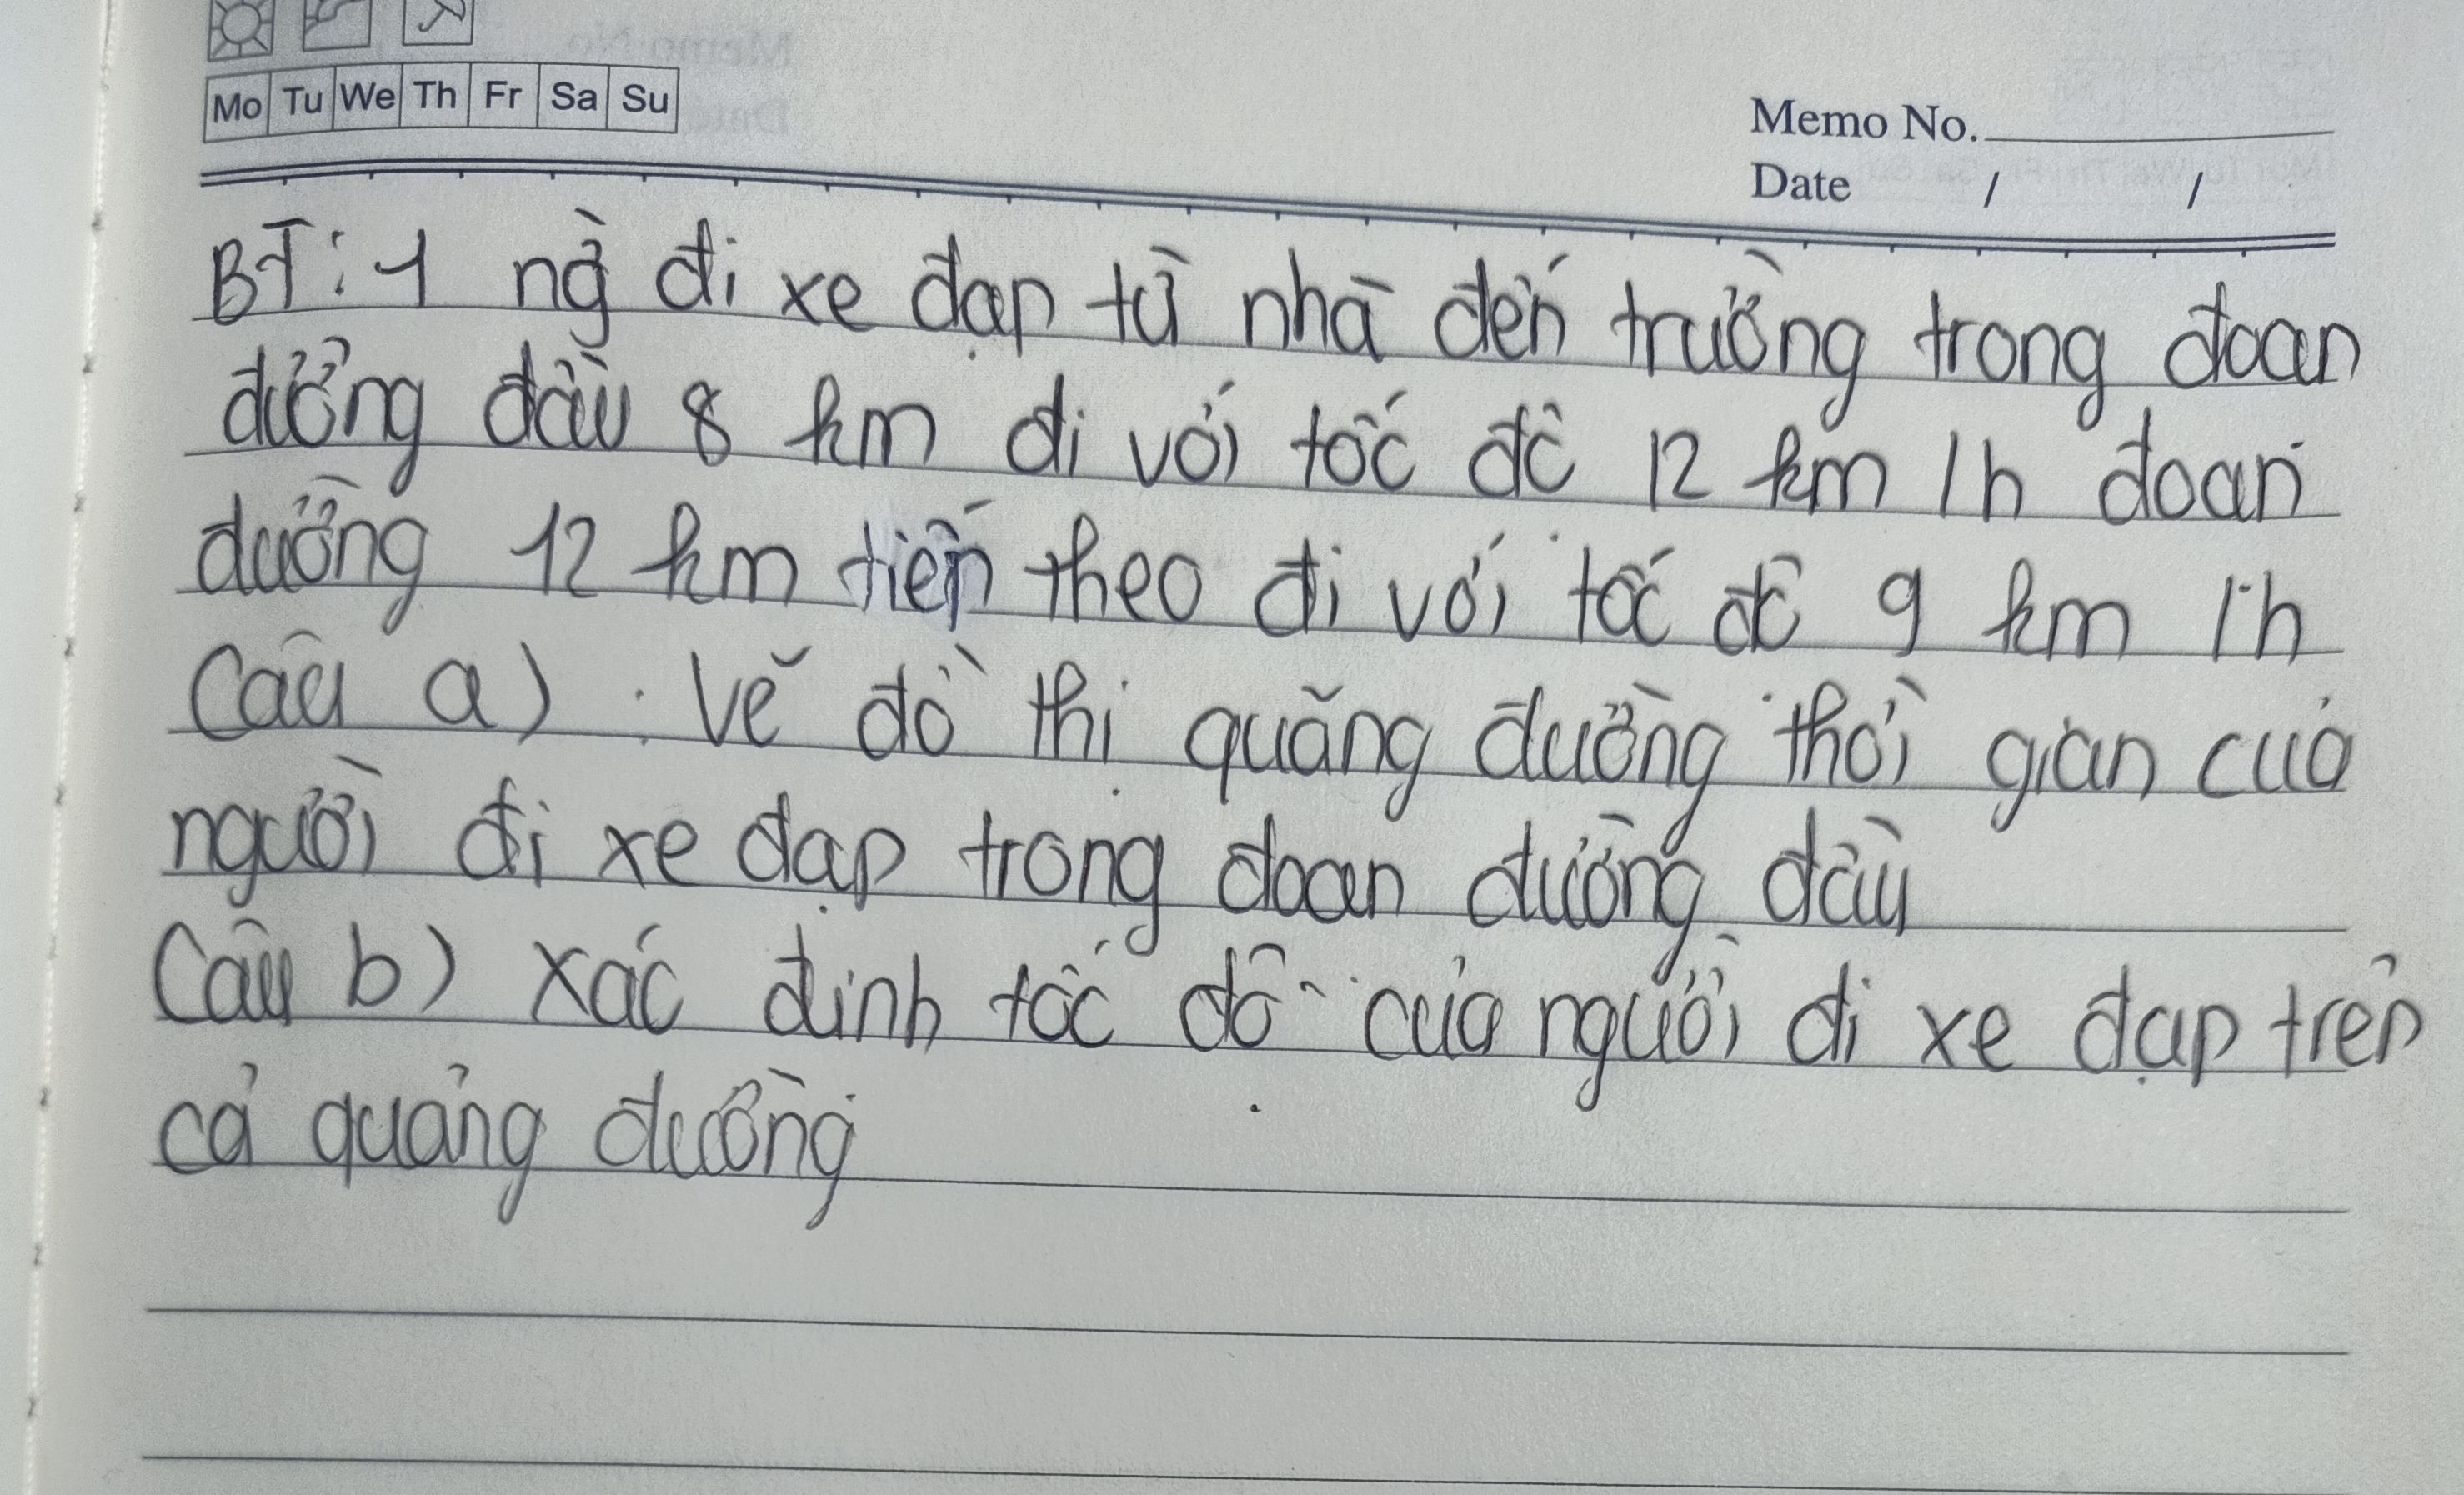 Mo Tu We Th Fr Sa Su
Memo No.
Date / /
BT: 1 ng̀ đi xe đạp từ nhà đến trường trong đoan
đường đầu 8 km đi với tốc độ 12 km /h đoan
đường 12 km tiếp theo đi với tốc độ 9 km /h
Câu a) : Vẽ đồ thị quãng đường thời gian của
người đi xe đạp trong đoan đường đầu
Câu b) xác định tốc độ của người đi xe đạp trên
cả quảng đường